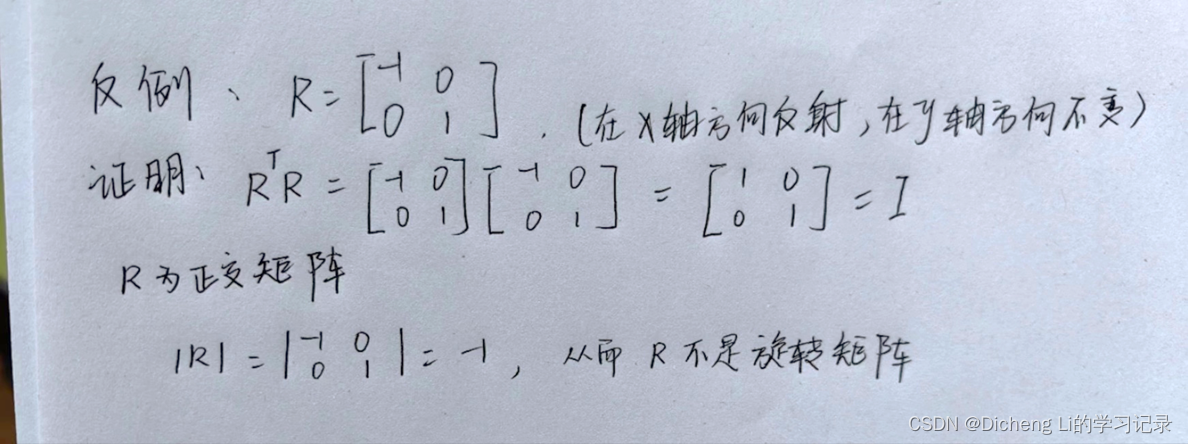 反例、 R = [-1 0; 0 1] . (在X轴方向反射,在y轴方向不变)
证明、 RᵀR = [-1 0; 0 1] [-1 0; 0 1] = [1 0; 0 1] = I
R为正交矩阵
|R| = |-1 0; 0 1| = -1, 从而 R 不是旋转矩阵
CSDN @Dicheng Li的学习记录